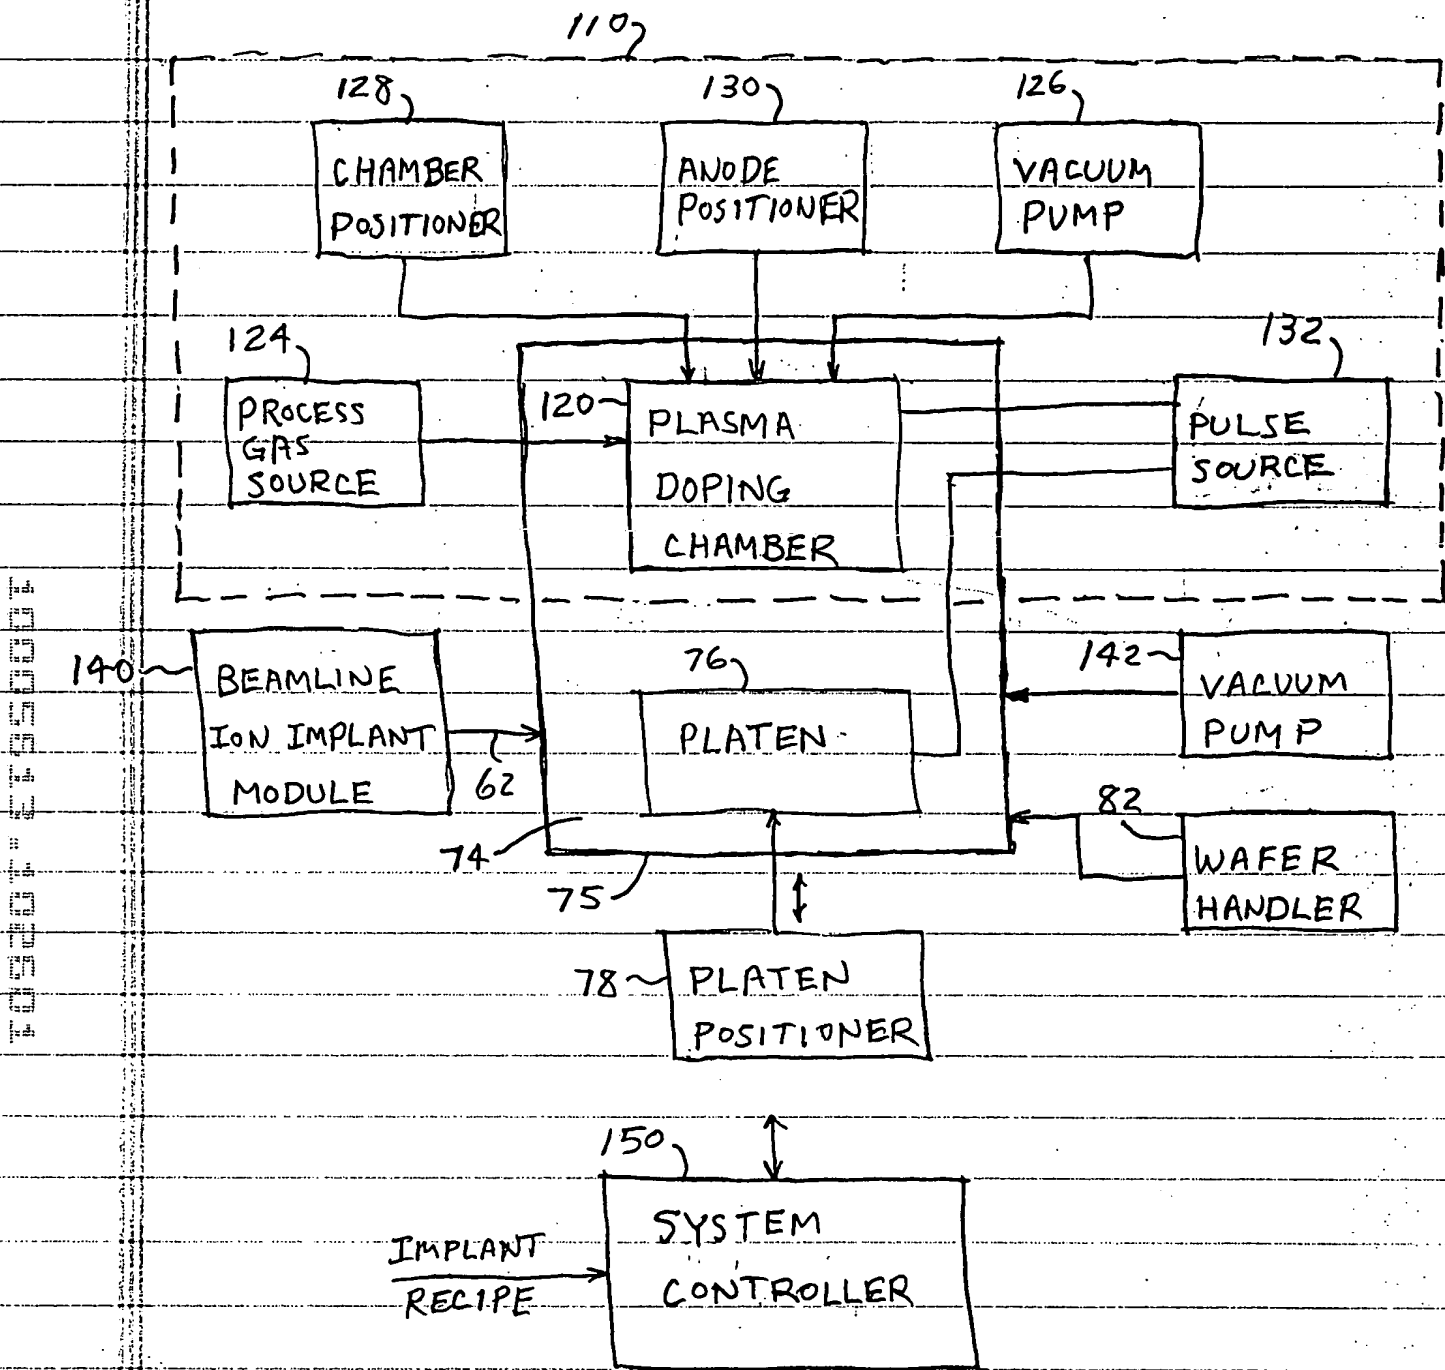 110
128
130
126
CHAMBER
POSITIONER
ANODE
POSITIONER
VACUUM
PUMP
124
132
PROCESS
GAS
SOURCE
120
PLASMA
DOPING
CHAMBER
PULSE
SOURCE
140
BEAMLINE
ION IMPLANT
MODULE
62
76
PLATEN
142
VACUUM
PUMP
82
WAFER
HANDLER
74
75
78
PLATEN
POSITIONER
150
SYSTEM
CONTROLLER
IMPLANT
RECIPE